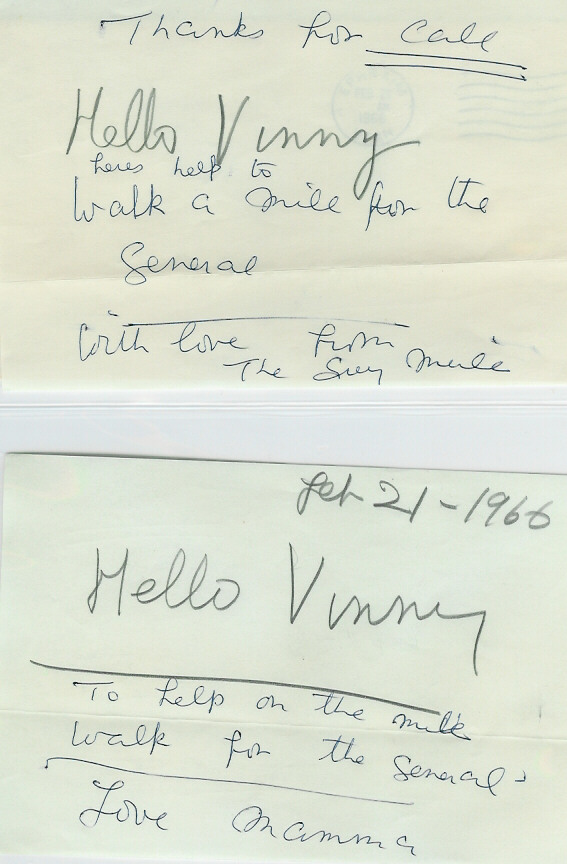 Thanks for Call
Hello Vinny
heres help to
Walk a mile for the
General
With love from
The
Feb 21-1966
Hello Vinny
To help on the
Walk for the General
Love Mamma